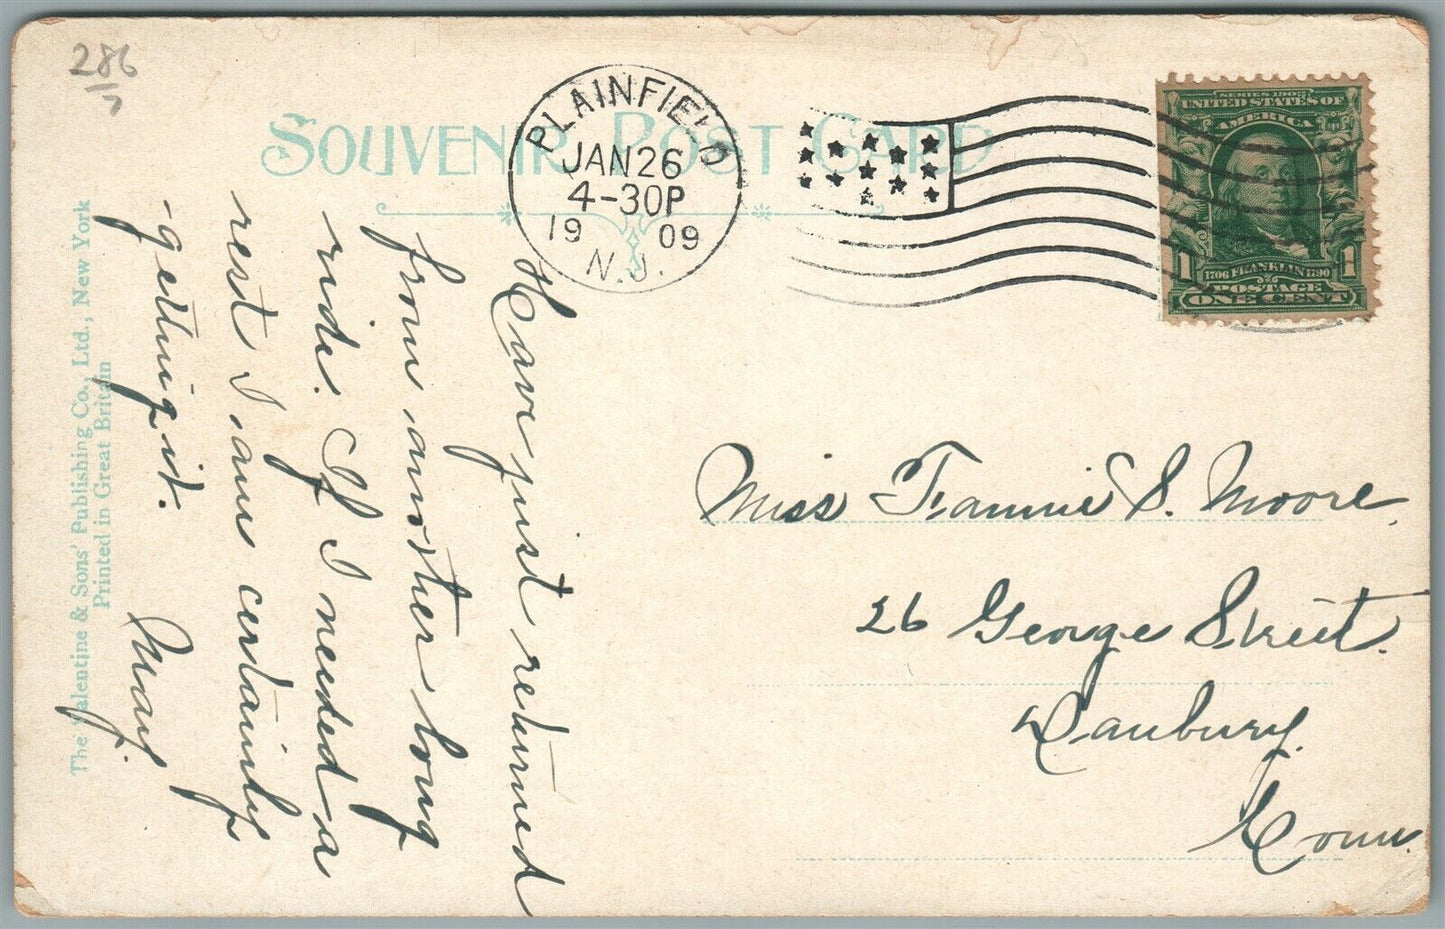 286
7
SOUVENIR POST CARD
PLAINFIELD
JAN 26
4-30P
19 09
N.J.
SERIES 1902
UNITED STATES OF
AMERICA
1 1706 FRANKLIN 1790 1
POSTAGE
ONE CENT
Have just returned
from another long
ride. If I needed a
rest I am certainly
getting it.
May.
Miss Fannie S. Moore.
26 George Street.
Danbury.
Conn.
The Valentine & Sons' Publishing Co., Ltd., New York
Printed in Great Britain